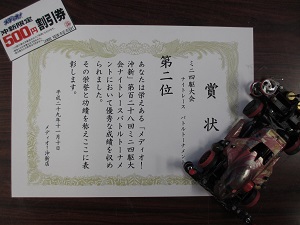 沖新限定
500円割引券
賞状
ミニ四駆大会
ナイトレース バトルトーナメント
第二位
あなたは栄えある「メディオ!
沖新」第百二十八回ミニ四駆大
会ナイトレースバトルトーナメ
ントにおいて優秀な成績を収め
られました。
その栄誉と功績を称えここに表
彰します。
平成二十九年十一月十日
メディオ!沖新店